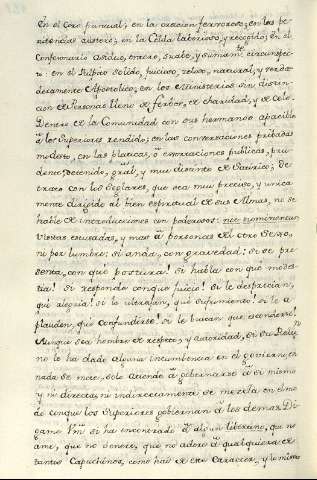 En el Coro puntual; en la oracion fervoroso; en las pe-
nitencias austero; en la Celda laborioso, y recogido; en el
Confesonario asiduo, entero, suabe, y sumamte. circunspec-
to: en el Pulpito solido, juicioso, zeloso, natural, y verda-
deramente Apostolico; en los Ministerios sin distin-
cion de Personas lleno de fervor, de charidad, y de Zelo.
Dentro de la Comunidad con sus hermanos apacible
à los Superiores rendido; en las conversaciones pribadas
modesto, en las platicas, ò exortaciones publicas, pru-
dente, detenido, gral, y muy distante de Satirico; De
trato con los Seglares, que sea muy preciso, y unica-
mente dirigido al bien espiritual de sus Almas, no se
hable de introducciones con poderosos: ni
visitas escusadas, y mas à personas del otro Sexo,
ni por lumbre; si anda, con gravedad: si se pre-
senta, con què postura! si habla con què modes-
tia! si responde con què juicio! si le desprecian,
què alegria! si le ultrajan, què sufrimiento! si le a-
plauden, què confundirse! si le buscan què esconderse!
Aunque sea hombre de respeto, y autoridad, si su Religon
no le ha dado alguna incumbencia en el govierno, en
nada se mete, solo atiende à gobernarse à si mismo
y ni directa, ni indirectamente se mezcla en el mo-
do con que los Superiores gobiernan à los demas. Di-
game Vm si ha encontrado à algun libertino, que no
ame, que no venere, que no adore à qualquiera de
tantos Capuchinos, como hai de este Caracter, y lo mismo